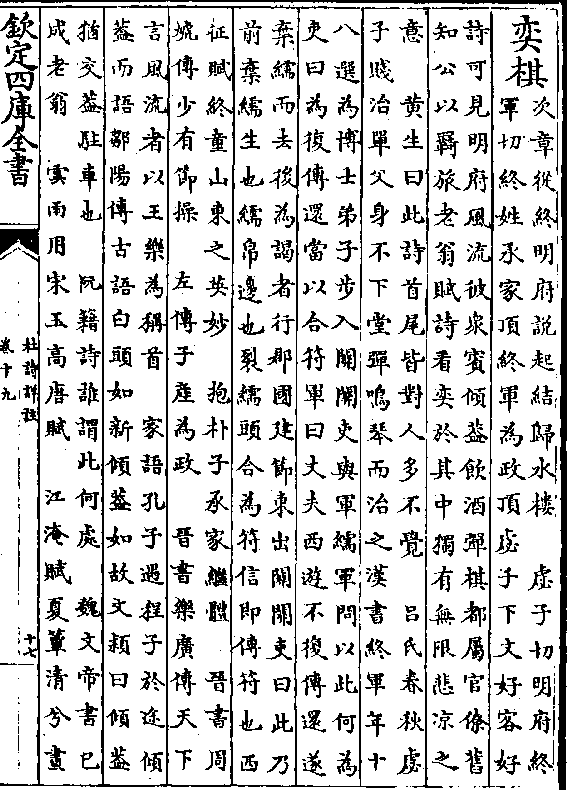 奕棋
次章從終明府說起結歸水樓　虙子切明府終
軍切終姓承家頂終軍為政頂虙子下文好客好
詩可見明府風流彼衆賓傾葢飲酒彈棋都屬官僚舊
知公以羇旅老翁賦詩看奕於其中獨有無限悲涼之
意　黃生曰此詩首尾皆對人多不覺　吕氏春秋虙
子賤治單父身不下堂彈鳴琴而治之漢書終軍年十
八選為博士弟子步入關關吏與軍繻軍問以此何為
吏曰為復傳還當以合符軍曰丈夫西遊不復傳還遂
棄繻而去後為謁者行郡國建節東出關關吏曰此乃
前棄繻生也繻帛邊也裂繻頭合為符信即傳符也西
征賦終童山東之英妙　抱朴子承家繼體　晉書周
嬈傳少有節操　左傳子產為政　晉書樂廣傳天下
言風流者以王樂為稱首　家語孔子遇程子於途傾
葢而語鄒陽傳古語白頭如新傾葢如故文穎曰傾葢
猶交葢駐車也　阮籍詩誰謂此何處　魏文帝書已
成老翁　雲雨用宋玉高唐賦　江淹賦夏簟清兮晝
欽定四庫全書
杜詩詳註
卷十九
十七